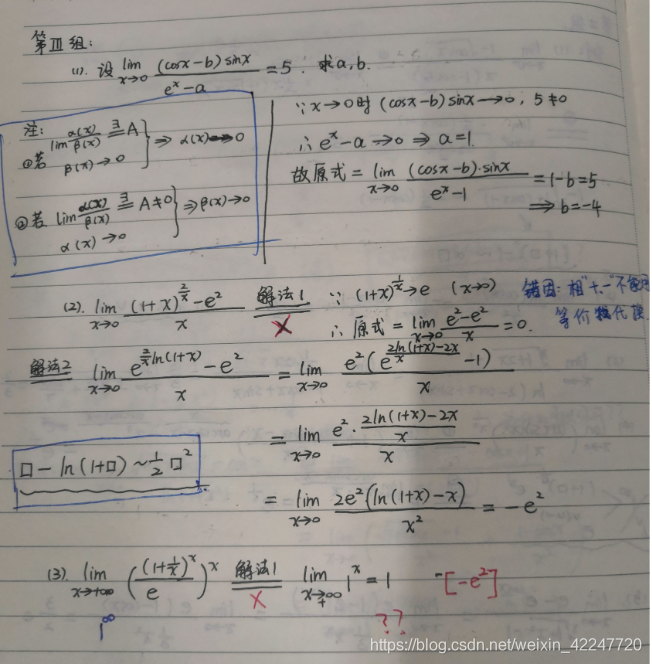 第Ⅲ组:
(1). 设 lim_{x→0} (cosx-b)sinx / (e^x-a) = 5. 求a,b.
注:
①若 lim α(x)/β(x) ∃= A, β(x)→0 } ⇒ α(x)→0
②若 lim α(x)/β(x) ∃= A≠0, α(x)→0 } ⇒ β(x)→0
∵ x→0时 (cosx-b)sinx→0, 5≠0
∴ e^x-a→0 ⇒ a=1.
故原式 = lim_{x→0} (cosx-b)·sinx / (e^x-1) = 1-b=5
⇒ b=-4
(2). lim_{x→0} ((1+x)^{2/x} - e^2) / x 解法1 ✗ ∵ (1+x)^{1/x}→e (x→0)
∴ 原式 = lim_{x→0} (e^2-e^2) / x = 0.
错因: 相"+、-"不能用
等价 代换
解法2 lim_{x→0} (e^{2/x ln(1+x)} - e^2) / x = lim_{x→0} e^2(e^{(2ln(1+x)-2x)/x} - 1) / x
= lim_{x→0} (e^2 · (2ln(1+x)-2x)/x) / x
□ - ln(1+□) ~ 1/2 □^2
= lim_{x→0} 2e^2(ln(1+x)-x) / x^2 = -e^2
(3). lim_{x→+∞} ((1+1/x)^x / e)^x 解法1 ✗ lim_{x→+∞} 1^x = 1 -[-e^2]
1^∞
??
https://blog.csdn.net/weixin_42247720